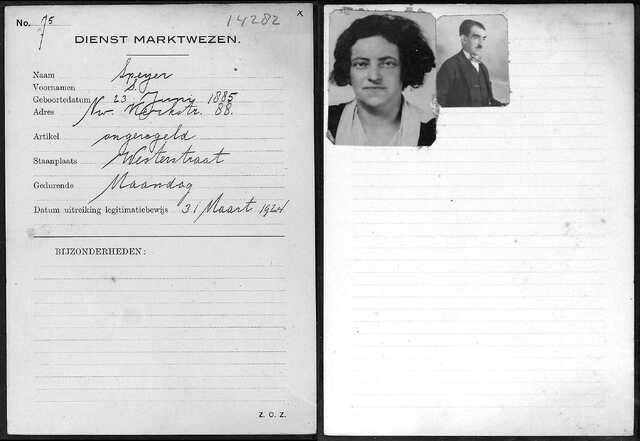 No. 75
14282
x
DIENST MARKTWEZEN.
Naam Speyer
Voornamen S.
Geboortedatum 23 Juni 1885
Adres Nw. Kerkstr. 88.
Artikel ongeregeld
Staanplaats Westerstraat
Gedurende Maandag
Datum uitreiking legitimatiebewijs 31 Maart 1924
BIJZONDERHEDEN:
Z. O. Z.